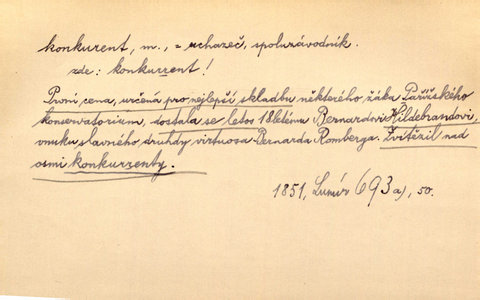 konkurent, m., = uchazeč, spoluzávodník.
zde: konkurzent!
První cena, určená pro nejlepší skladbu některého žáka Pařížského
konservatorium, dostala se letos 18letému Bernardovi Hildebrandovi,
vnuku slavného druhdy virtuosa Bernarda Romberga. Zvítězil nad
osmi konkurzenty.
1851, Lumír 693a), 50.